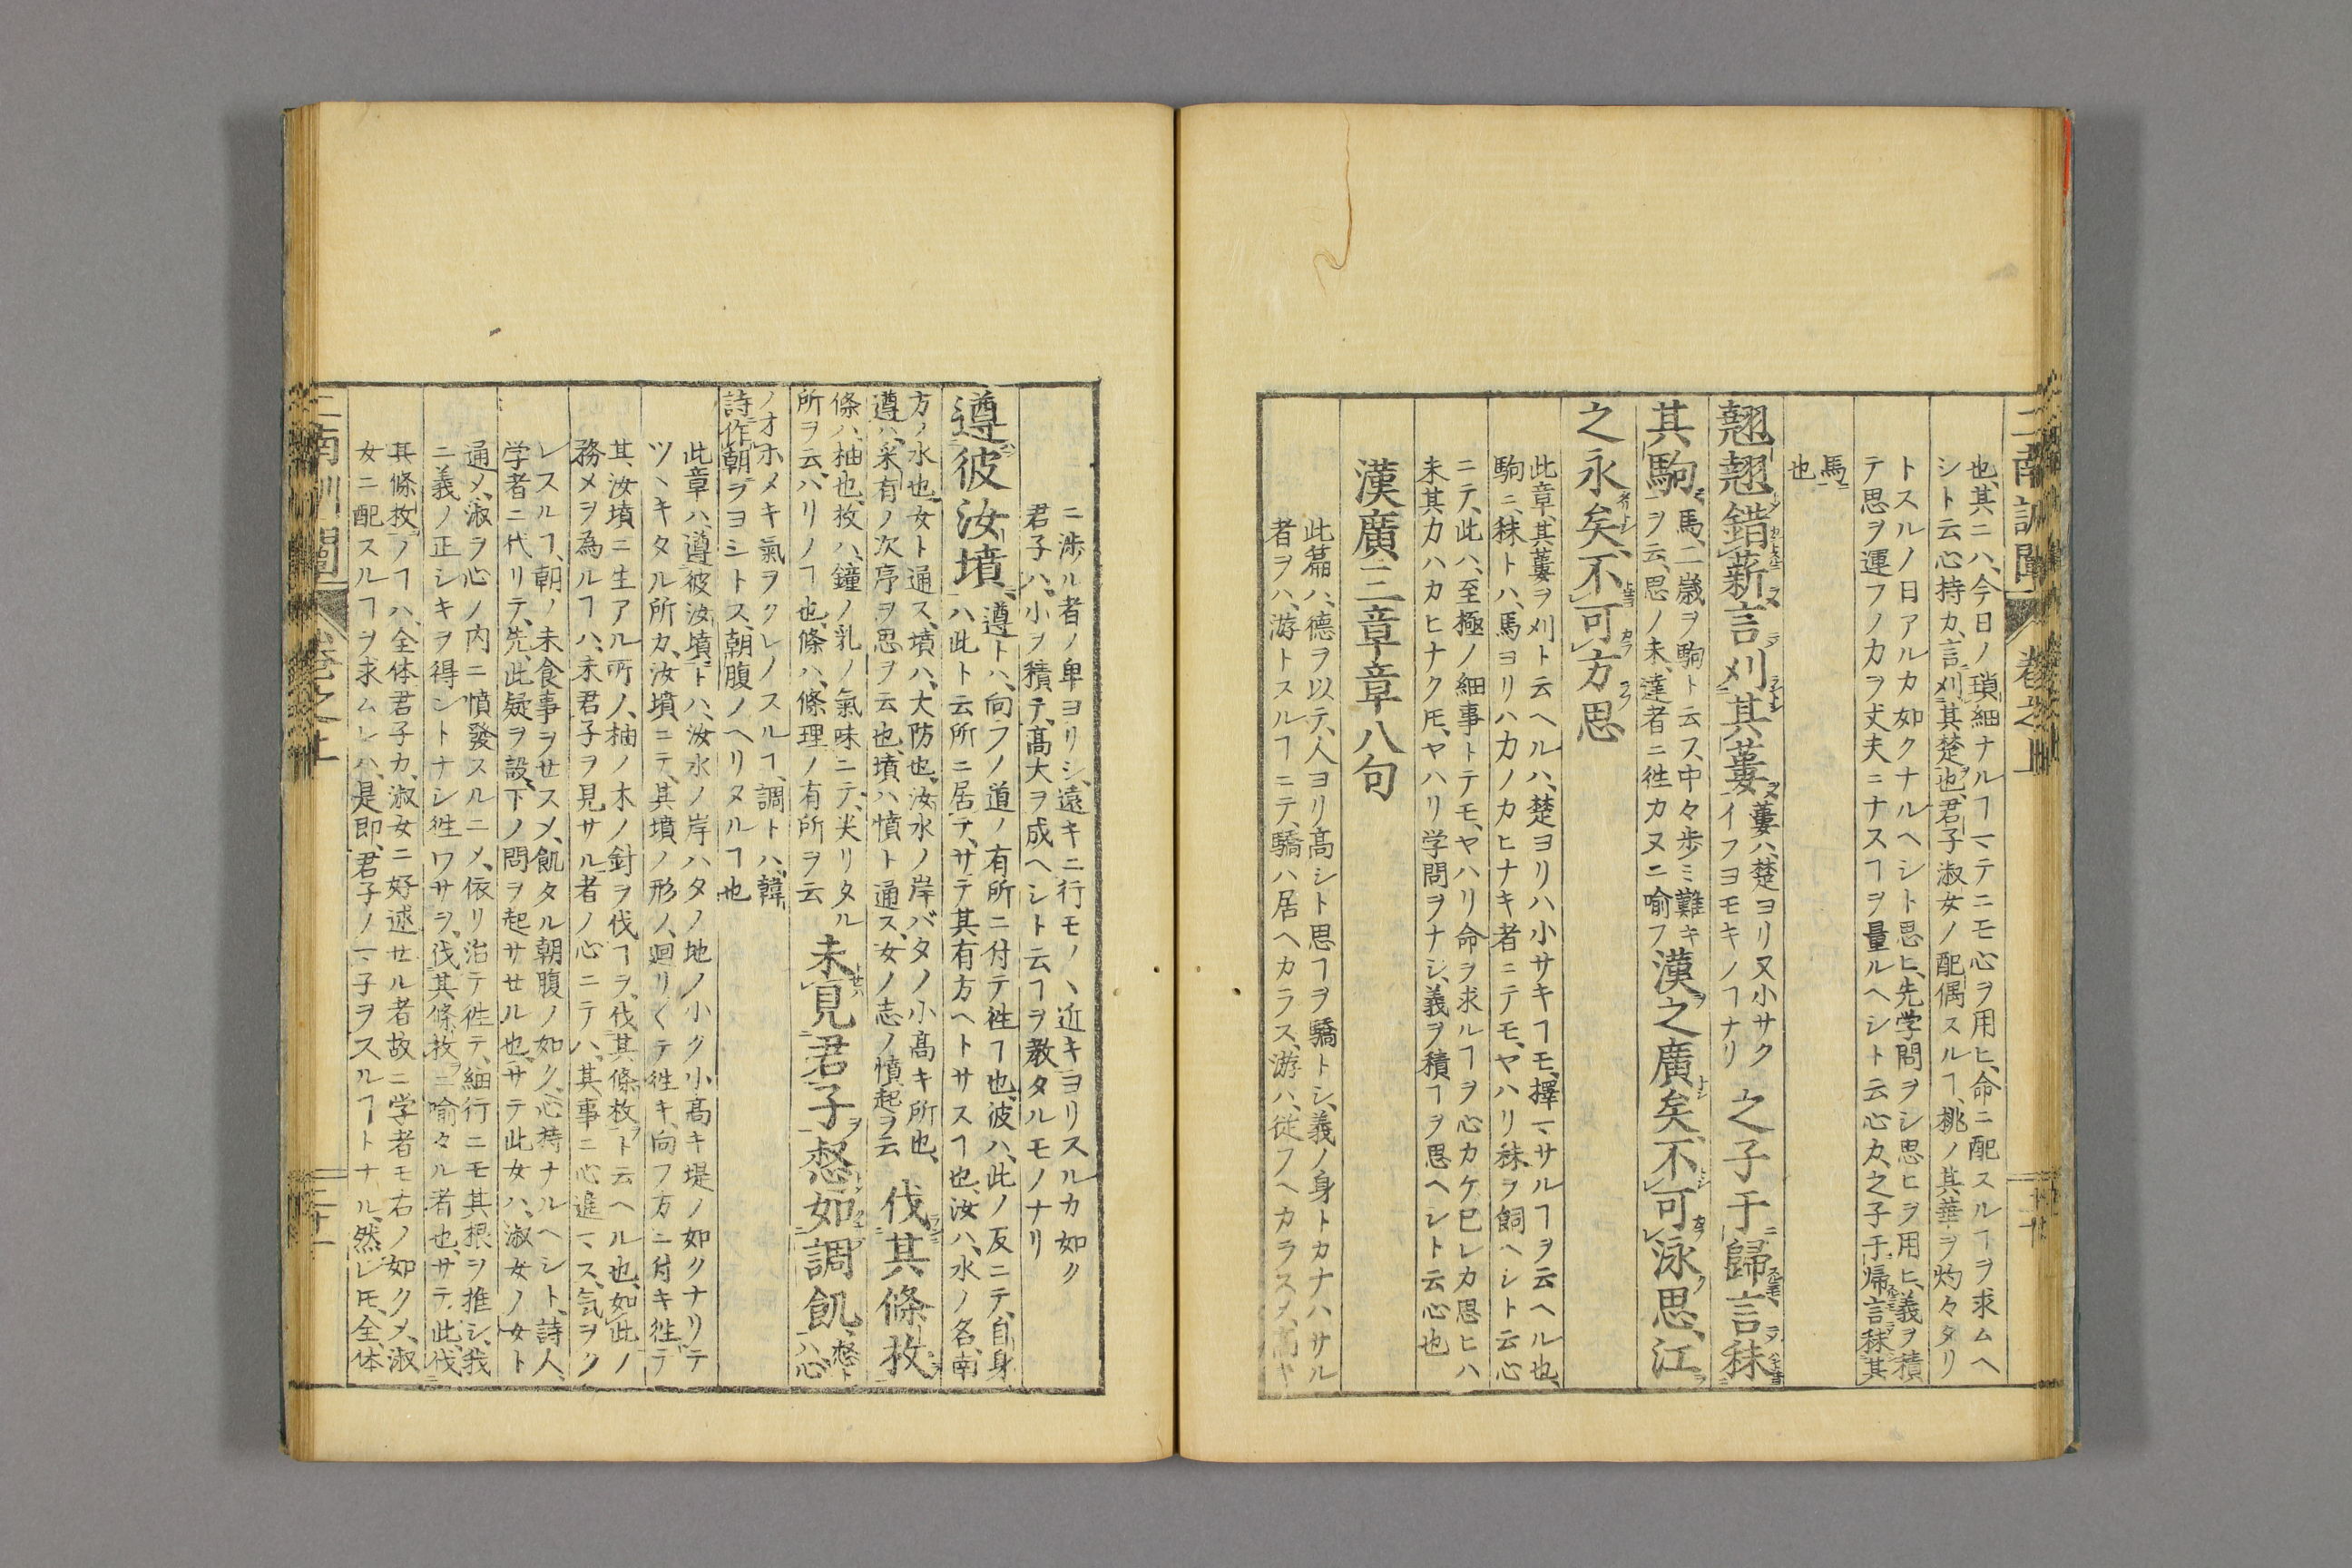 二南訓闡 卷之上
也、其ニハ、今日ノ瑣細ナルヿマテニモ心ヲ用ヒ、命ニ配スルヿヲ求ムヘ
シト云心持カ、言刈其楚也、君子淑女ノ配偶スルヿ、桃ノ其華ヲ灼々タリ
トスルノ日アルカ如クナルヘシト思ヒ、先学問ヲシ思ヒヲ用ヒ、義ヲ積
テ思ヲ運フノ力ヲ丈夫ニナスヿヲ量ルヘシト云心カ、之子于帰言秣其
馬
也
翹翹錯薪言刈其蔞
蔞ハ、楚ヨリ又小サク
イフヨモキノヿナリ
之子于歸言秣
其駒
馬、二歳ヲ駒ト云ス、中々歩ミ難キ
ヲ云、思ノ未、達者ニ徃カヌニ喻フ
漢之廣矣、不可泳思、江
之永矣、不可方思
此章、其蔞ヲ刈ト云ヘルハ、楚ヨリハ小サキヿモ、擇マサルヿヲ云ヘル也、
駒ニ秣トハ、馬ヨリハ力ノカヒナキ者ニテモ、ヤハリ秣ヲ飼ヘシト云心
ニテ、此ハ、至極ノ細事トテモ、ヤハリ命ヲ求ルヿヲ心カケ巳レカ思ヒハ
未其力ハカヒナクモ、ヤハリ学問ヲナシ、義ヲ積ヿヲ思ヘシト云心也
漢廣三章章八句
此篇ハ、德ヲ以テ、人ヨリ高シト思ヿヲ驕トシ、義ノ身トカナハサル
者ヲハ、游トスルヿニテ、驕ハ居ヘカラス、游ハ、従フヘカラス、高キ
ニ渉ル者ノ卑ヨリシ、遠キニ行モノヽ近キヨリスルカ如ク
君子ハ、小ヲ積テ、高大ヲ成ヘシト云ヿヲ教タルモノナリ
遵彼汝墳、
遵トハ、向フノ道ノ有所ニ付テ徃ヿ也、彼ハ、此ノ反ニテ、自身
ハ此ト云所ニ居テ、サテ其有方ヘトサスヿ也、汝ハ、水ノ名、南
方ノ水也、女ト通ス、墳ハ、大防也、汝水ノ岸バタノ小高キ所也、
遵ハ、采有ノ次序ヲ思ヲ云也、墳ハ憤ト通ス、女ノ志ノ憤起ヲ云
伐其條枚
條ハ、柚也、枚ハ、鐘ノ乳ノ氣味ニテ、尖リタル
所ヲ云、ハリノヿ也、條ハ、條理ノ有所ヲ云
未見君子惄如調飢、
惄ト
ハ、心
ノオホメキ氣ヲクレノスルヿ、調トハ、韓
詩作朝ヲヨシトス、朝腹ノヘリタルヿ也
此章ハ、遵彼汝墳トハ、汝水ノ岸ハタノ地ノ小ク小高キ堤ノ如クナリテ
ツヽキタル所カ、汝墳ニテ、其墳ノ形ノ、廻リ〱テ徃キ、向フ方ニ付キ徃テ
其、汝墳ニ生アル所ノ、柚ノ木ノ針ヲ伐ヿヲ、伐其條枚ト云ヘル也、如此ノ
務メヲ為ルヿハ、未君子ヲ見サル者ノ心ニテハ、其事ニ心進マス、気ヲク
レスルヿ、朝ノ未食事ヲセスメ、飢タル朝腹ノ如ク、心持ナルヘシト、詩人
学者ニ代リテ、先、此疑ヲ設、下ノ問ヲ起サセル也、サテ此女ハ、淑女ノ女ト
通メ、淑ヲ心ノ内ニ憤發スルニメ、依リ治テ徃テ、細行ニモ其根ヲ推シ、我
ニ義ノ正シキヲ得シトナシ徃ワサヲ、伐其條枚ニ喻々ル者也、サテ、此、伐
其條枚ノヿハ、全体君子カ、淑女ニ好逑セル者故ニ学者モ右ノ如クメ、淑
女ニ配スルヿヲ求ムレハ、是即、君子ノマ子ヲスルヿトナル、然レモ、全体
二南訓闡 卷之上 二十一